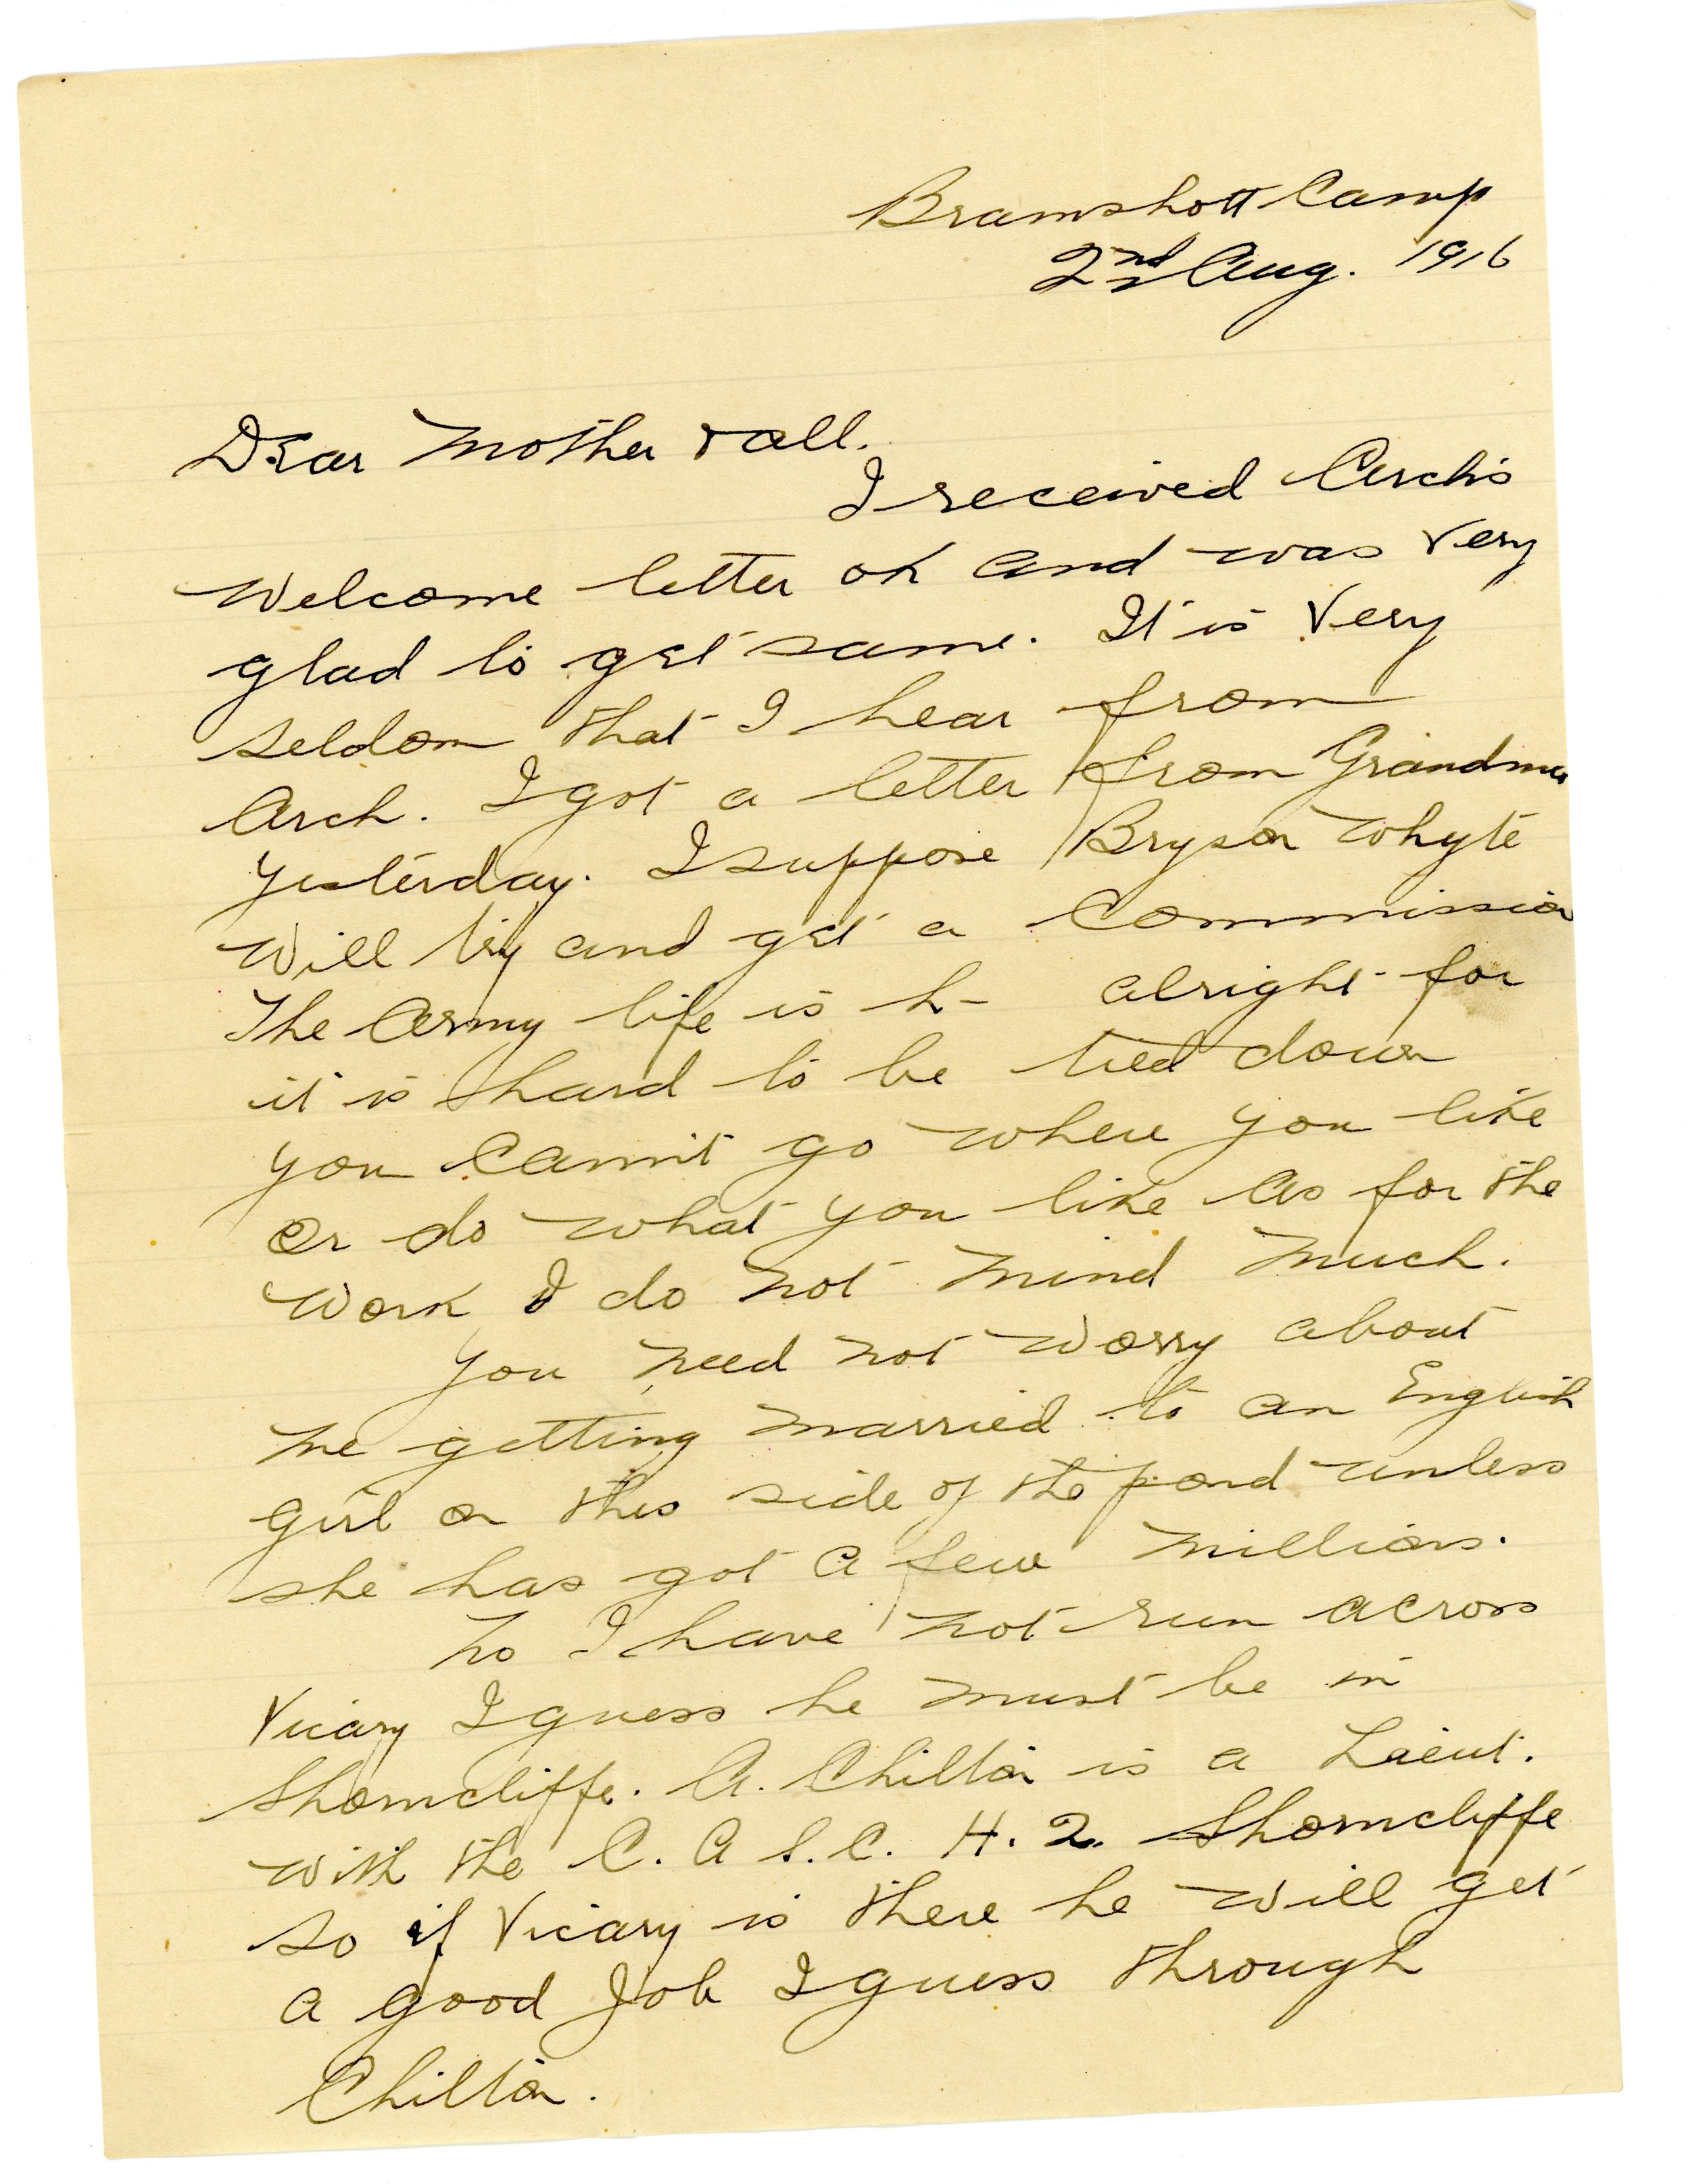 Bramshott Camp
2nd Aug. 1916
Dear Mother & all.
I received Arch's
Welcome letter ok and was very
glad to get same. It is Very
seldom that I hear from
Arch. I got a letter from Grandma
yesterday. I suppose Bryson Whyte
Will try and get a Commission
The Army life is h- alright for
it is hard to be tied down
you cann't go where you like
or do what you like As for the
Work I do not mind much.
You need not worry about
me getting married to an English
girl on this side of the pond unless
she has got a few millions.
No I have not run across
Vicary I guess he must be in
Shorncliffe. A. Chilton is a Leiut.
with the C. A S. C. H. Q. Shorncliffe
so if Vicary is there he will get
a good Job I guess through
Chilton.